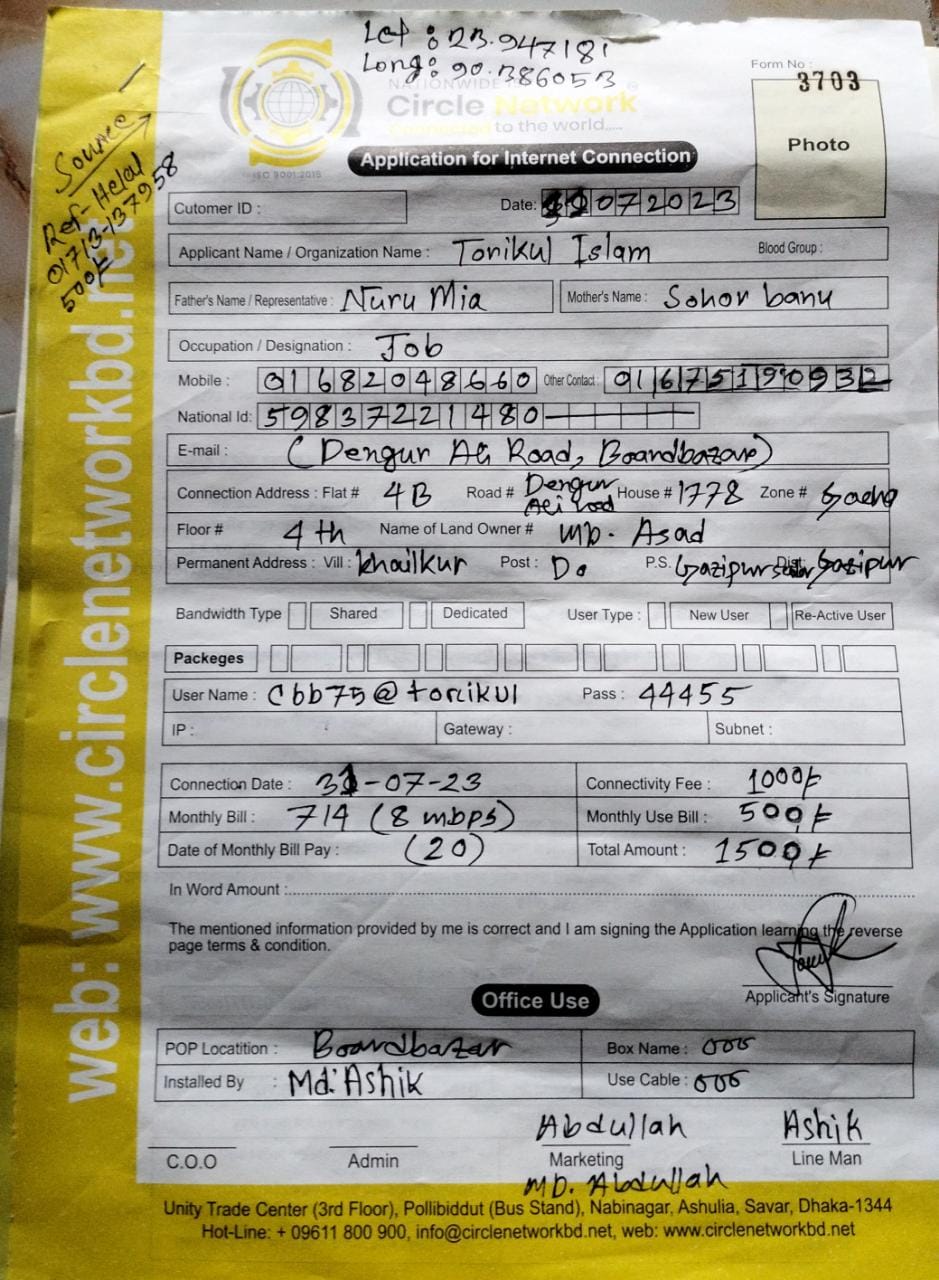 Lat : 23.947181
Long: 90.386053
NATIONWIDE
Circle Network
Connected to the world.....
ISO 9001:2015
Form No :
3703
Photo
Source
Ref- Helal
01713-137958
500/-
web: www.circlenetworkbd.net
Application for Internet Connection
Cutomer ID :
Date: 07 2023
Applicant Name / Organization Name : Torikul Islam Blood Group :
Father's Name / Representative : Nuru Mia Mother's Name : Sohor banu
Occupation / Designation : Job
Mobile : 01682048660 Other Contact : 01675190932
National Id: 59837221480
E-mail : (Dengur Ali Road, Boardbazar)
Connection Address : Flat # 4B Road # Dengur Ali road House # 1778 Zone # Gacha
Floor # 4th Name of Land Owner # MD. Asad
Permanent Address : Vill : Khailkur Post : Do P.S. Gazipur Sadar Dist. Gazipur
Bandwidth Type Shared Dedicated User Type : New User Re-Active User
Packeges
User Name : Cbb75@torikul Pass : 44455
IP : Gateway : Subnet :
Connection Date : 31-07-23 Connectivity Fee : 1000/-
Monthly Bill : 714 (8 mbps) Monthly Use Bill : 500/-
Date of Monthly Bill Pay : (20) Total Amount : 1500/-
In Word Amount :
The mentioned information provided by me is correct and I am signing the Application learning the reverse
page terms & condition.
Applicant's Signature
Office Use
POP Locatition : Boardbazar Box Name : 000
Installed By : Md: Ashik Use Cable : 000
Abdullah Ashik
C.O.O Admin Marketing Line Man
MD. Abdullah
Unity Trade Center (3rd Floor), Pollibiddut (Bus Stand), Nabinagar, Ashulia, Savar, Dhaka-1344
Hot-Line: + 09611 800 900, info@circlenetworkbd.net, web: www.circlenetworkbd.net